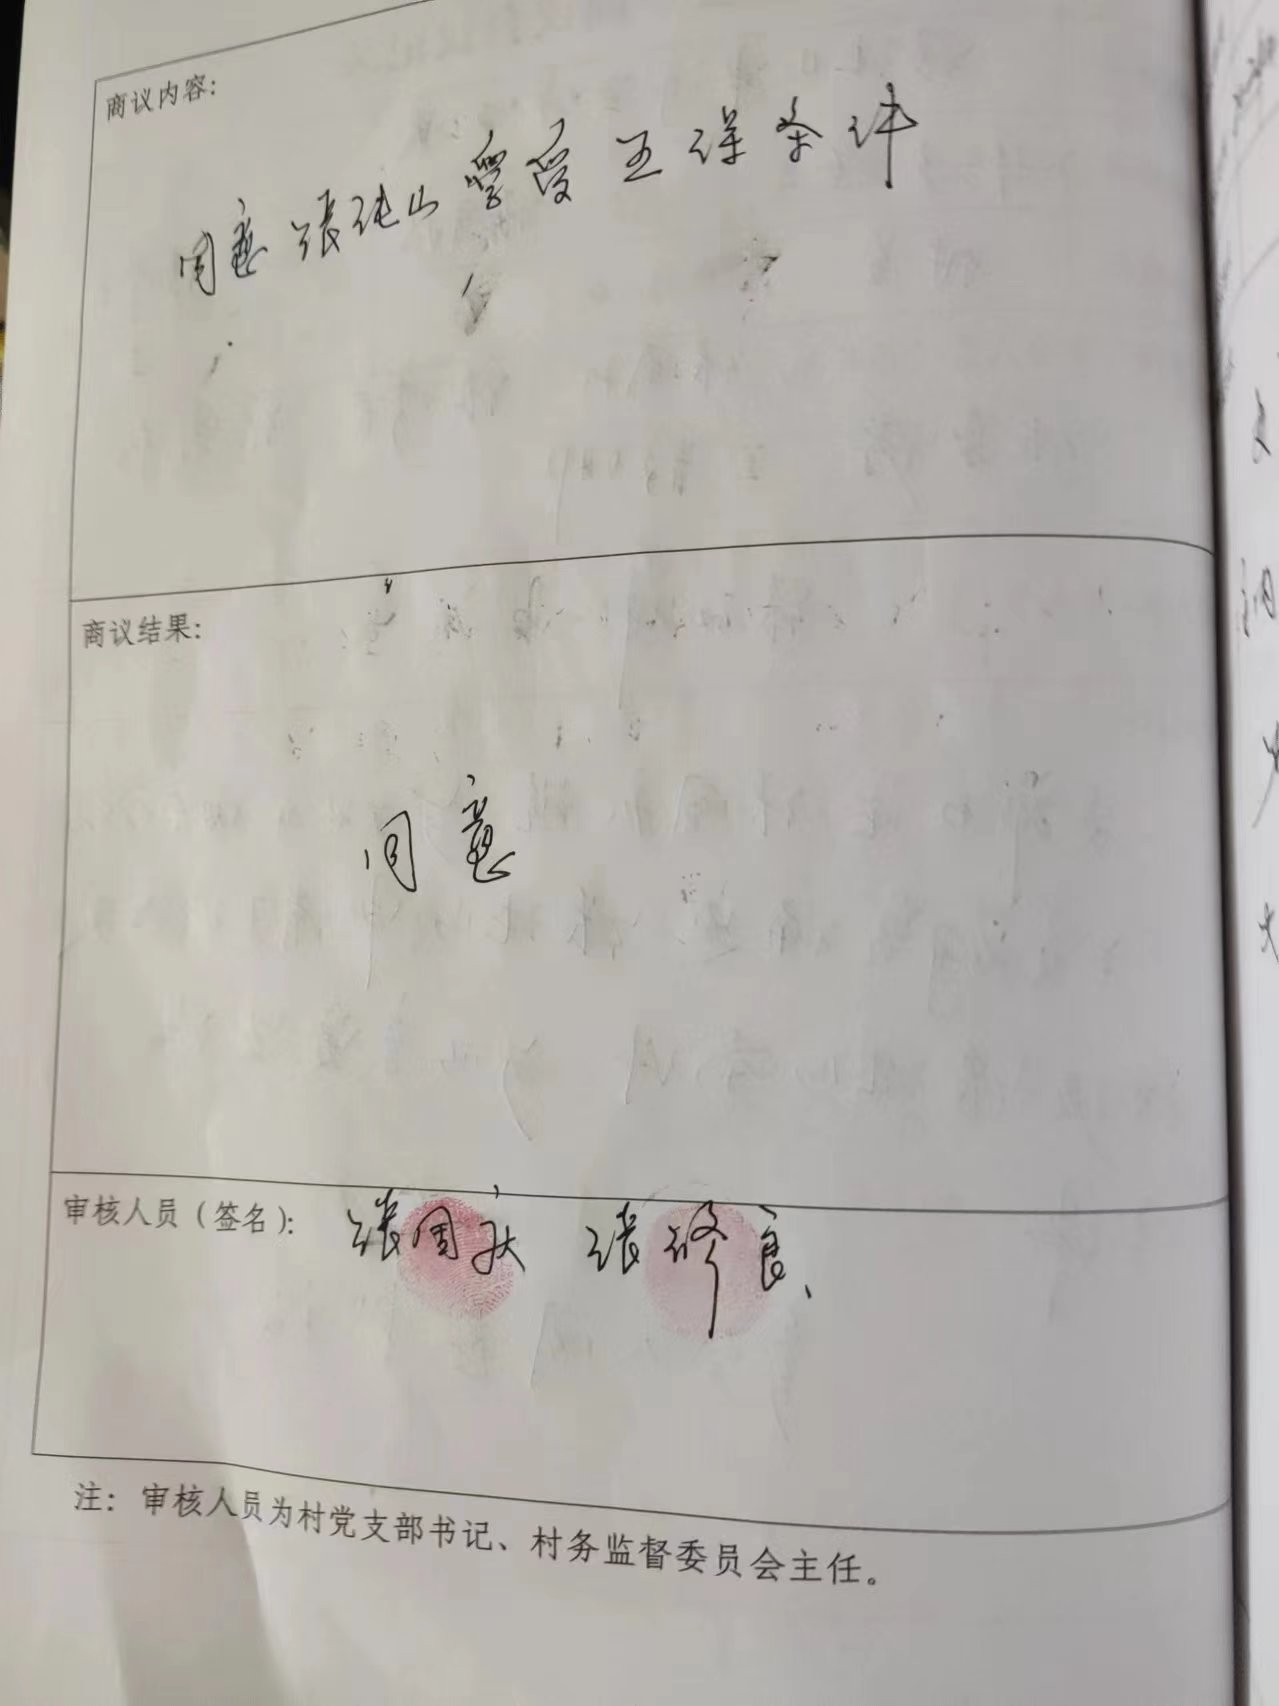 商议内容：
同意张纯山享受五保条件
商议结果：
同意
审核人员（签名）： 张国庆 张修良
注：审核人员为村党支部书记、村务监督委员会主任。